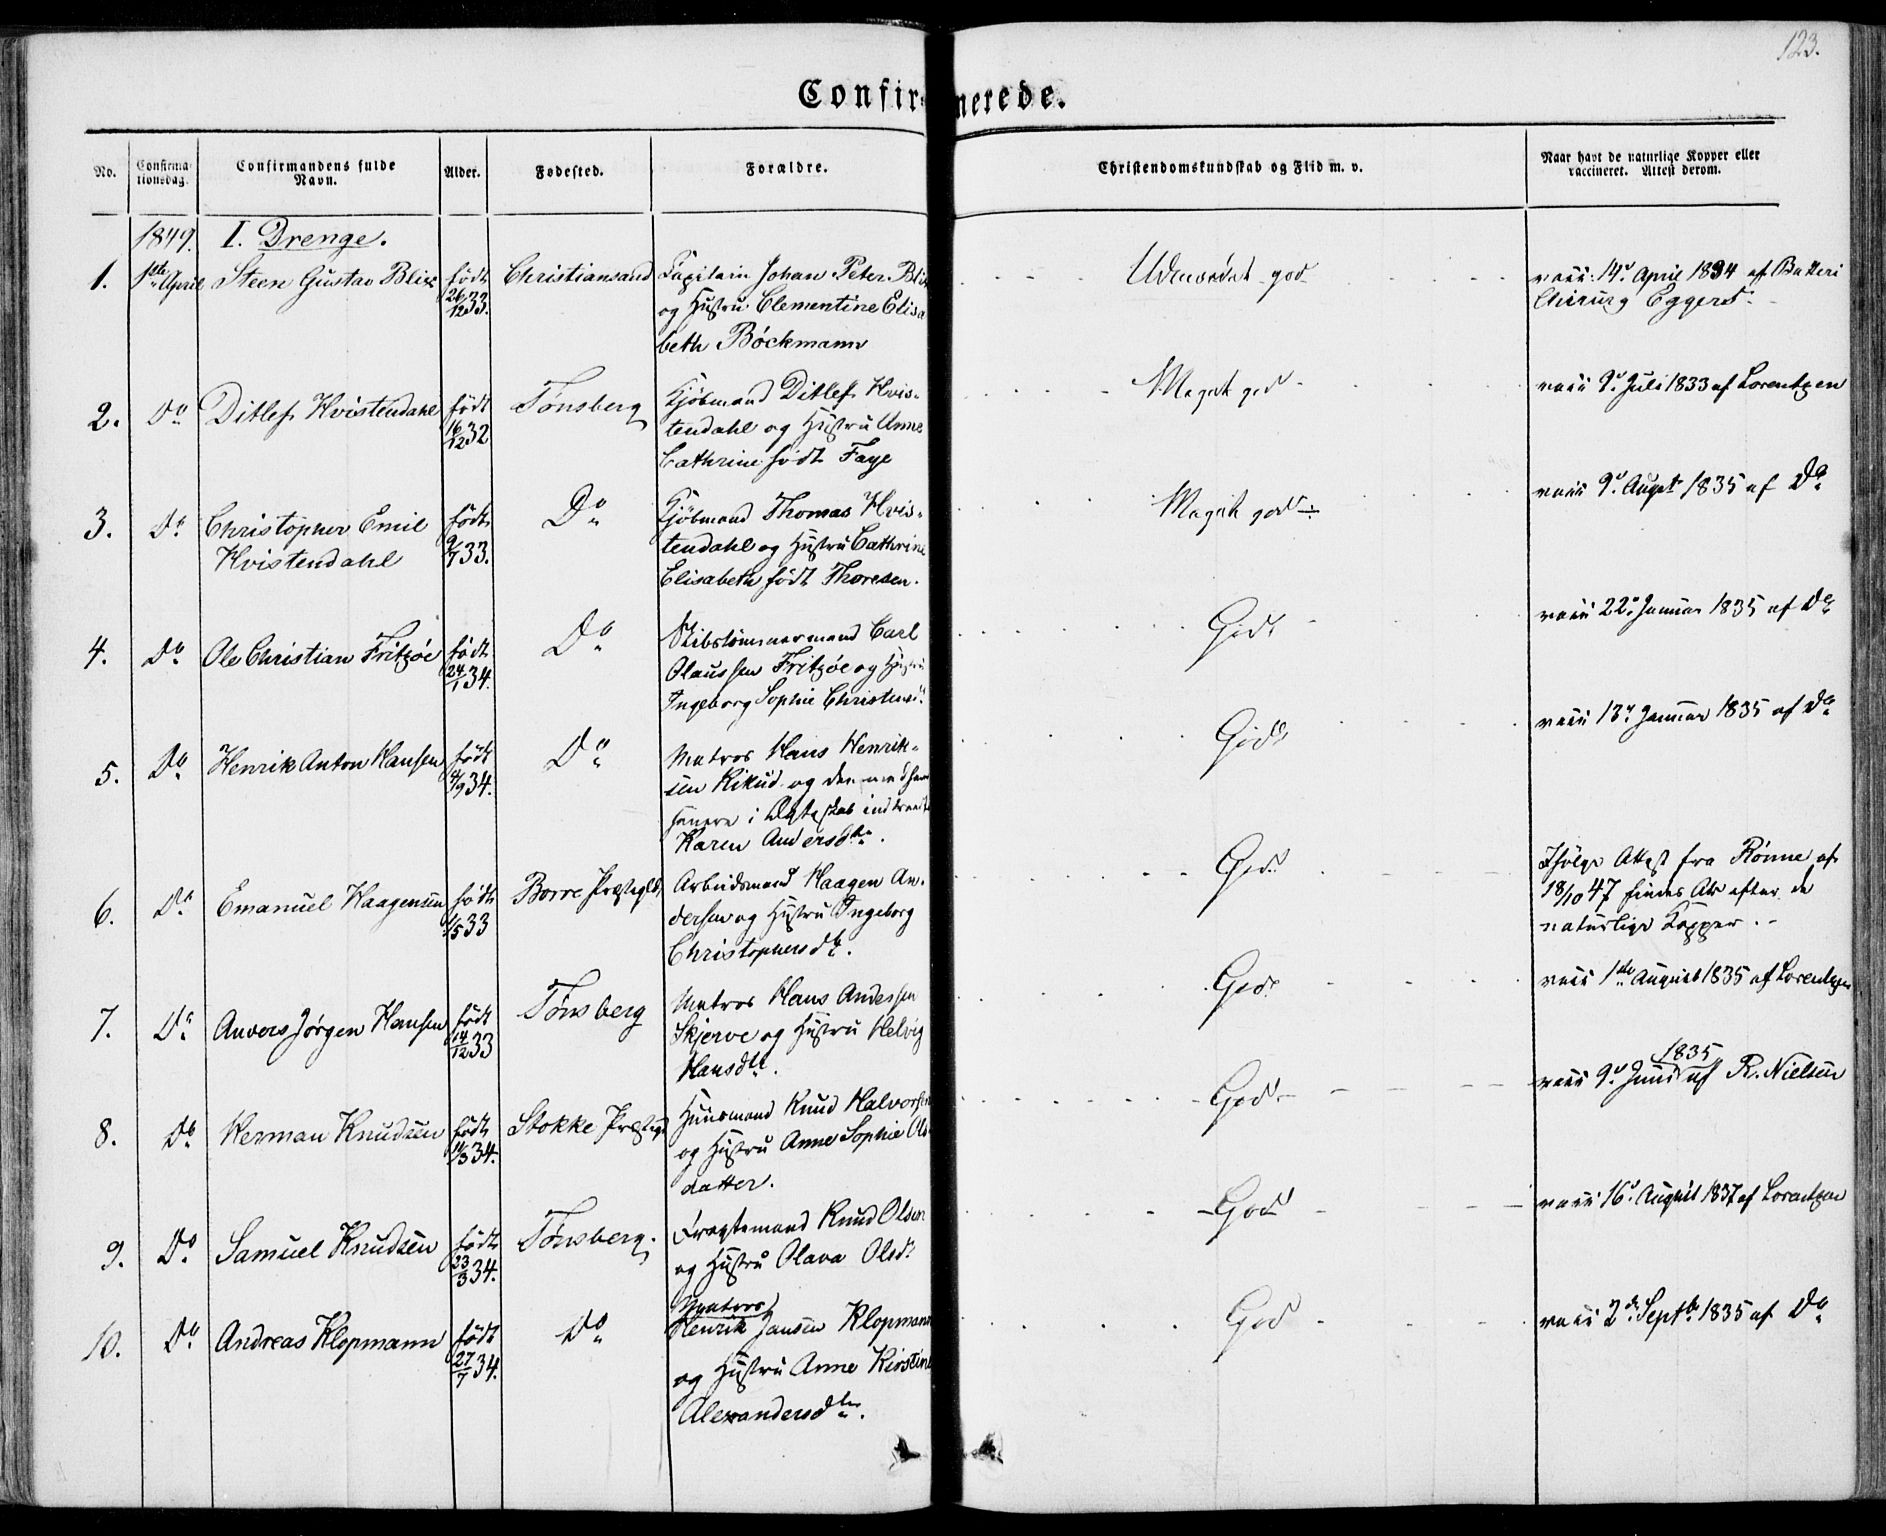 123.
Confirmerede.
No.
Confirma-
tionsdag.
Confirmandens fulde
Navn.
Alder.
Fødested.
Forældre.
Christendomskundskab og Flid m. v.
Naar havt de naturlige Kopper eller
vaccineret. Attest derom.
1849. I. Drenge.
1. 1ste April Steen Gustav Blix født 26/12 33. Christiansand
Capitain Johan Peter Blix
og Hustru Clementine Elisa
beth Böckmann
Udmærket god
vacc: 14de April 1834 af Batteri
Chirurg Eggers
2. Do Ditlef Hvistendahl født 16/12 32 Tønsberg
Kjöbmand Ditlef Hvis-
tendahl og Hustru Anne
Cathrine født Faye
Meget god
vacc 9de Juli 1833 af Lorentzen
3. Do Christopher Emil
Hvistendahl
født 9/7 33. Do
Kjöbmand Thomas Hvis-
tendahl og Hustru Cathrine
Elisabeth født Thoresen.
Meget god
vacc 9de Augst 1835 af Do
4. Do Ole Christian Fritzöe født 24/1 34. Do
Skibstömmermand Carl
Olaussen Fritzöe og Hustru
Ingeborg Sophie Christensdtr
God
vacc 22de Januar 1835 af Do
5. Do Henrik Anton Hansen født 34. Do
Matros Hans Henrik-
sen Rikud og den med ham
senere i Ægteskab indtraadte
Karen Andersdtr.
God
vacc 13de Januar 1835 af Do
6. Do Emanuel Haagensen født 1/5 33 Borre Præstegld
Arbeidsmand Haagen An-
dersen og Hustru Ingeborg
Christophersdtr.
God
Ifölge Attest fra Rönne af
18/10 47 findes Ar efter de
naturlige Kopper.
7. Do Anders Jørgen Hansen født 14/12 33 Tønsberg
Matros Hans Anderssen
Skjerve og Hustru Helvig
Hansdtr.
God
vacc 1ste August 1835 af Lorentzen
8. Do Herman Knudsen født 11/3 34. Stokke Præstegd
Huusmand Knud Halvorsen
og Hustru Anne Sophie Ols
datter.
God
vacc 9de Juni 1835 af R. Nielsen
9. Do Samuel Knudsen født 23/3 34. Tønsberg.
Fragtemand Knud Olsen
og Hustru Olava Olsdr
God
vacc 16de August 1837 af Lorentzen
10. Do Andreas Klopmann født 27/7 34. Do
Matros
Henrik Jansen Klopmann
og Hustru Anne Kirstine
Alexandersdtr.
God
vacc 2de Septbr 1835 af Do